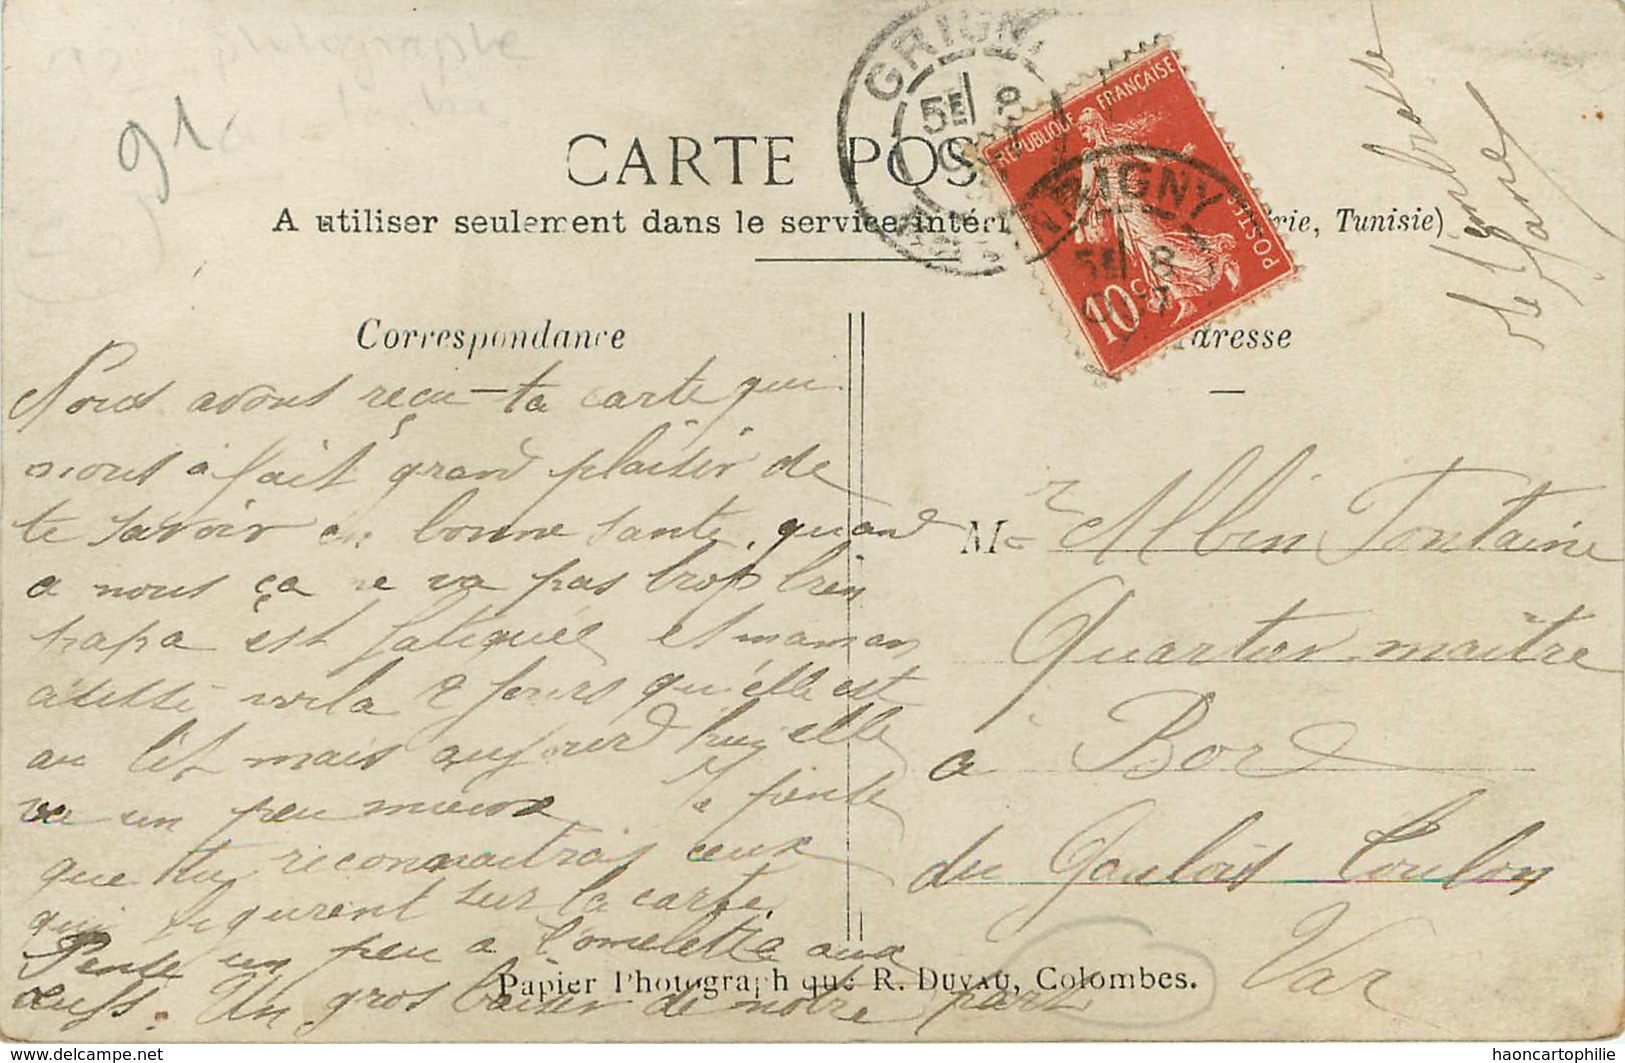 photographe
91
CARTE POS
A utiliser seulement dans le service intéri rie, Tunisie)
Correspondance
dresse
GRIGNY
5E 8
GRIGNY
5E 8
REPUBLIQUE FRANÇAISE
POSTES
10c
Nous avons reçu ta carte qui
nous a fait grand plaisir de
te savoir en bonne santé, quand
a nous ça ne va pas trop bien
papa est fatiguée et maman
aussi voila 2 jours qu'elle est
au lit mais aujourd huij elle
va un peu mieux Je pense
que tu reconnaitras ceux
qui figurent sur la carte.
Pense un peu a l'omelette aux
œufs. Un gros baiser de notre part
Mr Albin Fontaine
Quartier maître
a Bord
du Gaulois Toulon
Var
Papier Photographique R. DUVAU, Colombes.
haoncartophilie